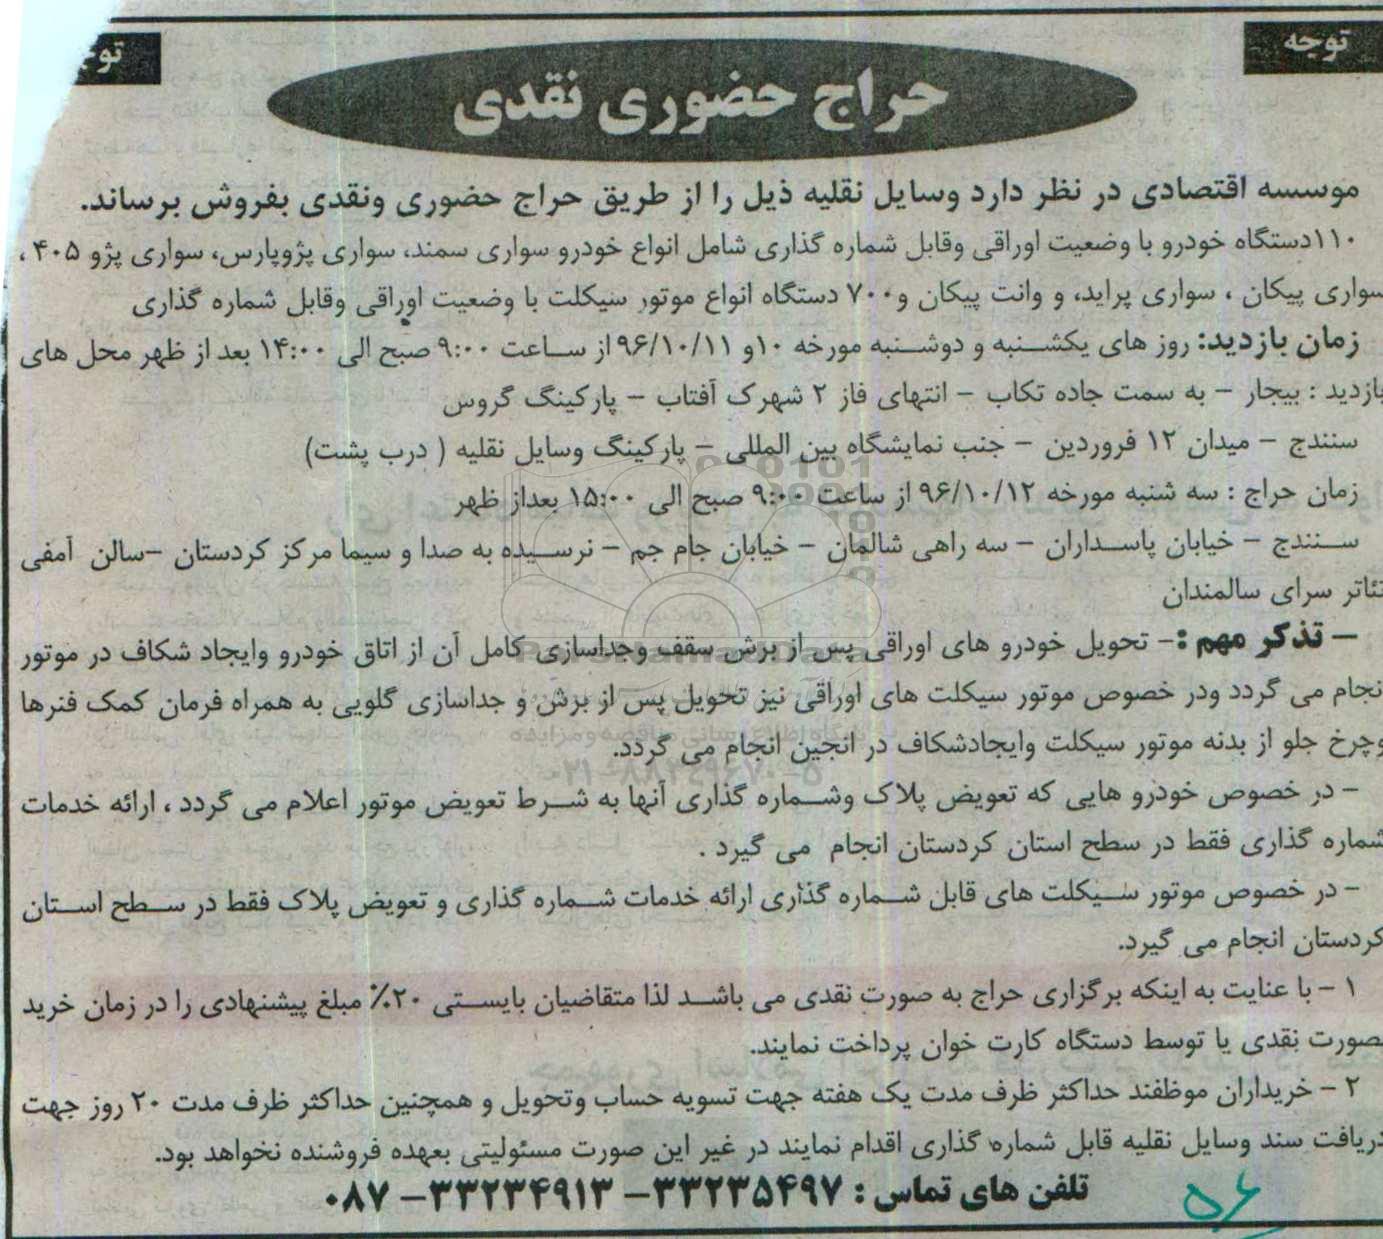 توجه
توج
حراج حضوری نقدی
موسسه اقتصادی در نظر دارد وسایل نقلیه ذیل را از طریق حراج حضوری ونقدی بفروش برساند.
۱۱۰دستگاه خودرو با وضعیت اوراقی وقابل شماره گذاری شامل انواع خودرو سواری سمند، سواری پژوپارس، سواری پژو ۴۰۵ ،
سواری پیکان ، سواری پراید، و وانت پیکان و۷۰۰ دستگاه انواع موتور سیکلت با وضعیت اوراقی وقابل شماره گذاری
زمان بازدید: روز های یکشنبه و دوشنبه مورخه ۱۰و ۹۶/۱۰/۱۱ از ساعت ۹:۰۰ صبح الی ۱۴:۰۰ بعد از ظهر محل های
بازدید : بیجار – به سمت جاده تکاب – انتهای فاز ۲ شهرک آفتاب – پارکینگ گروس
سنندج – میدان ۱۲ فروردین – جنب نمایشگاه بین المللی – پارکینگ وسایل نقلیه ( درب پشت)
زمان حراج : سه شنبه مورخه ۹۶/۱۰/۱۲ از ساعت ۹:۰۰ صبح الی ۱۵:۰۰ بعداز ظهر
سنندج – خیابان پاسداران – سه راهی شالمان – خیابان جام جم – نرسیده به صدا و سیما مرکز کردستان –سالن آمفی
تئاتر سرای سالمندان
– تذکر مهم :– تحویل خودرو های اوراقی پس از برش سقف وجداسازی کامل آن از اتاق خودرو وایجاد شکاف در موتور
انجام می گردد ودر خصوص موتور سیکلت های اوراقی نیز تحویل پس از برش و جداسازی گلویی به همراه فرمان کمک فنرها
وچرخ جلو از بدنه موتور سیکلت وایجادشکاف در انجین انجام می گردد.
– در خصوص خودرو هایی که تعویض پلاک وشماره گذاری آنها به شرط تعویض موتور اعلام می گردد ، ارائه خدمات
شماره گذاری فقط در سطح استان کردستان انجام می گیرد .
– در خصوص موتور سیکلت های قابل شماره گذاری ارائه خدمات شماره گذاری و تعویض پلاک فقط در سطح استان
کردستان انجام می گیرد.
۱ – با عنایت به اینکه برگزاری حراج به صورت نقدی می باشد لذا متقاضیان بایستی ۲۰٪ مبلغ پیشنهادی را در زمان خرید
بصورت نقدی یا توسط دستگاه کارت خوان پرداخت نمایند.
۲ – خریداران موظفند حداکثر ظرف مدت یک هفته جهت تسویه حساب وتحویل و همچنین حداکثر ظرف مدت ۲۰ روز جهت
دریافت سند وسایل نقلیه قابل شماره گذاری اقدام نمایند در غیر این صورت مسئولیتی بعهده فروشنده نخواهد بود.
تلفن های تماس : ۳۳۲۳۵۴۹۷– ۳۳۲۳۴۹۱۳– ۰۸۷